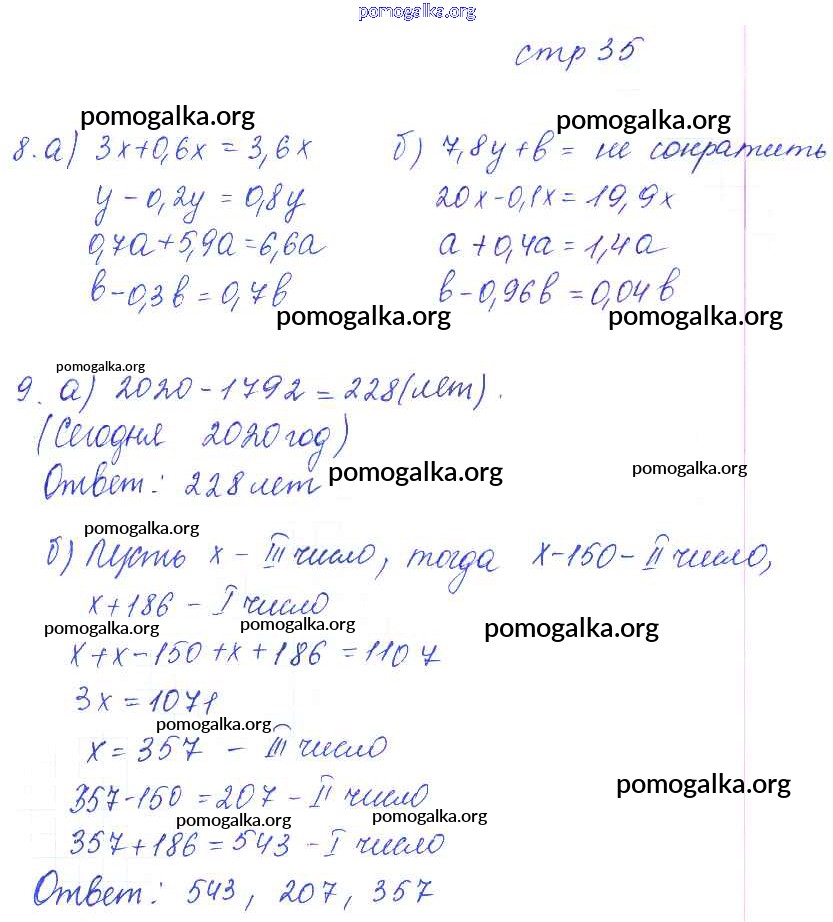 pomogalka.org
стр 35
pomogalka.org pomogalka.org
8. а) 3x+0,6x = 3,6x б) 7,8y+в = не сократить
y-0,2y = 0,8y 20x-0,1x = 19,9x
0,7а+5,9а=6,6а а+0,4а=1,4а
в-0,3в = 0,7в в-0,96в = 0,04в
pomogalka.org pomogalka.org
pomogalka.org
9. а) 2020-1792 = 228(лет).
(Сегодня 2020год)
pomogalka.org pomogalka.org
Ответ: 228 лет
pomogalka.org
б) Пусть x - III число, тогда x-150 - II число,
x+186 - I число
pomogalka.org pomogalka.org pomogalka.org
x+x-150+x+186 = 1107
3x = 1071
pomogalka.org
x = 357 - III число
pomogalka.org
357-150 = 207 - II число
pomogalka.org pomogalka.org
357+186 = 543 - I число
Ответ: 543, 207, 357